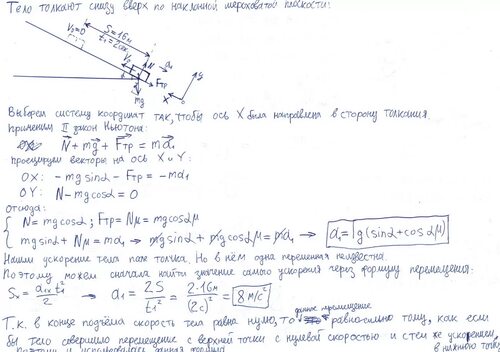 Тело толкают снизу вверх по наклонной шероховатой плоскости:
V₂=0
S=16м
t₁=2сек
V₁
N
a₁
Fтр
mg
X
y
Выберем систему координат так, чтобы ось X была направлена в сторону толкания.
Применим II закон Ньютона:
N + mg + Fтр = ma₁
проецируем векторы на ось X и Y:
OX: -mg sinα - Fтр = -ma₁
OY: N - mg cosα = 0
отсюда:
N = mg cosα; Fтр = Nμ = mg cosα μ
mg sinα + Nμ = ma₁ → mg sinα + mg cosα μ = ma₁ → a₁ = g(sinα + cosα μ)
Нашли ускорение тела после толчка. Но в нём одна переменная неизвестна.
Поэтому можем сначала найти значение самого ускорения через формулу перемещения:
Sₓ = a₁ₓt₁²/2 → a₁ = 2S/t₁² = 2·16м/(2с)² = 8 м/с²
данное перемещение
Т.к. в конце подъёма скорость тела равна нулю, то равносильно тому, как если
бы тело совершило перемещение с верхней точки с нулевой скоростью и с тем же ускорением,
в нижнюю точку
поэтому и использовалась данная формула